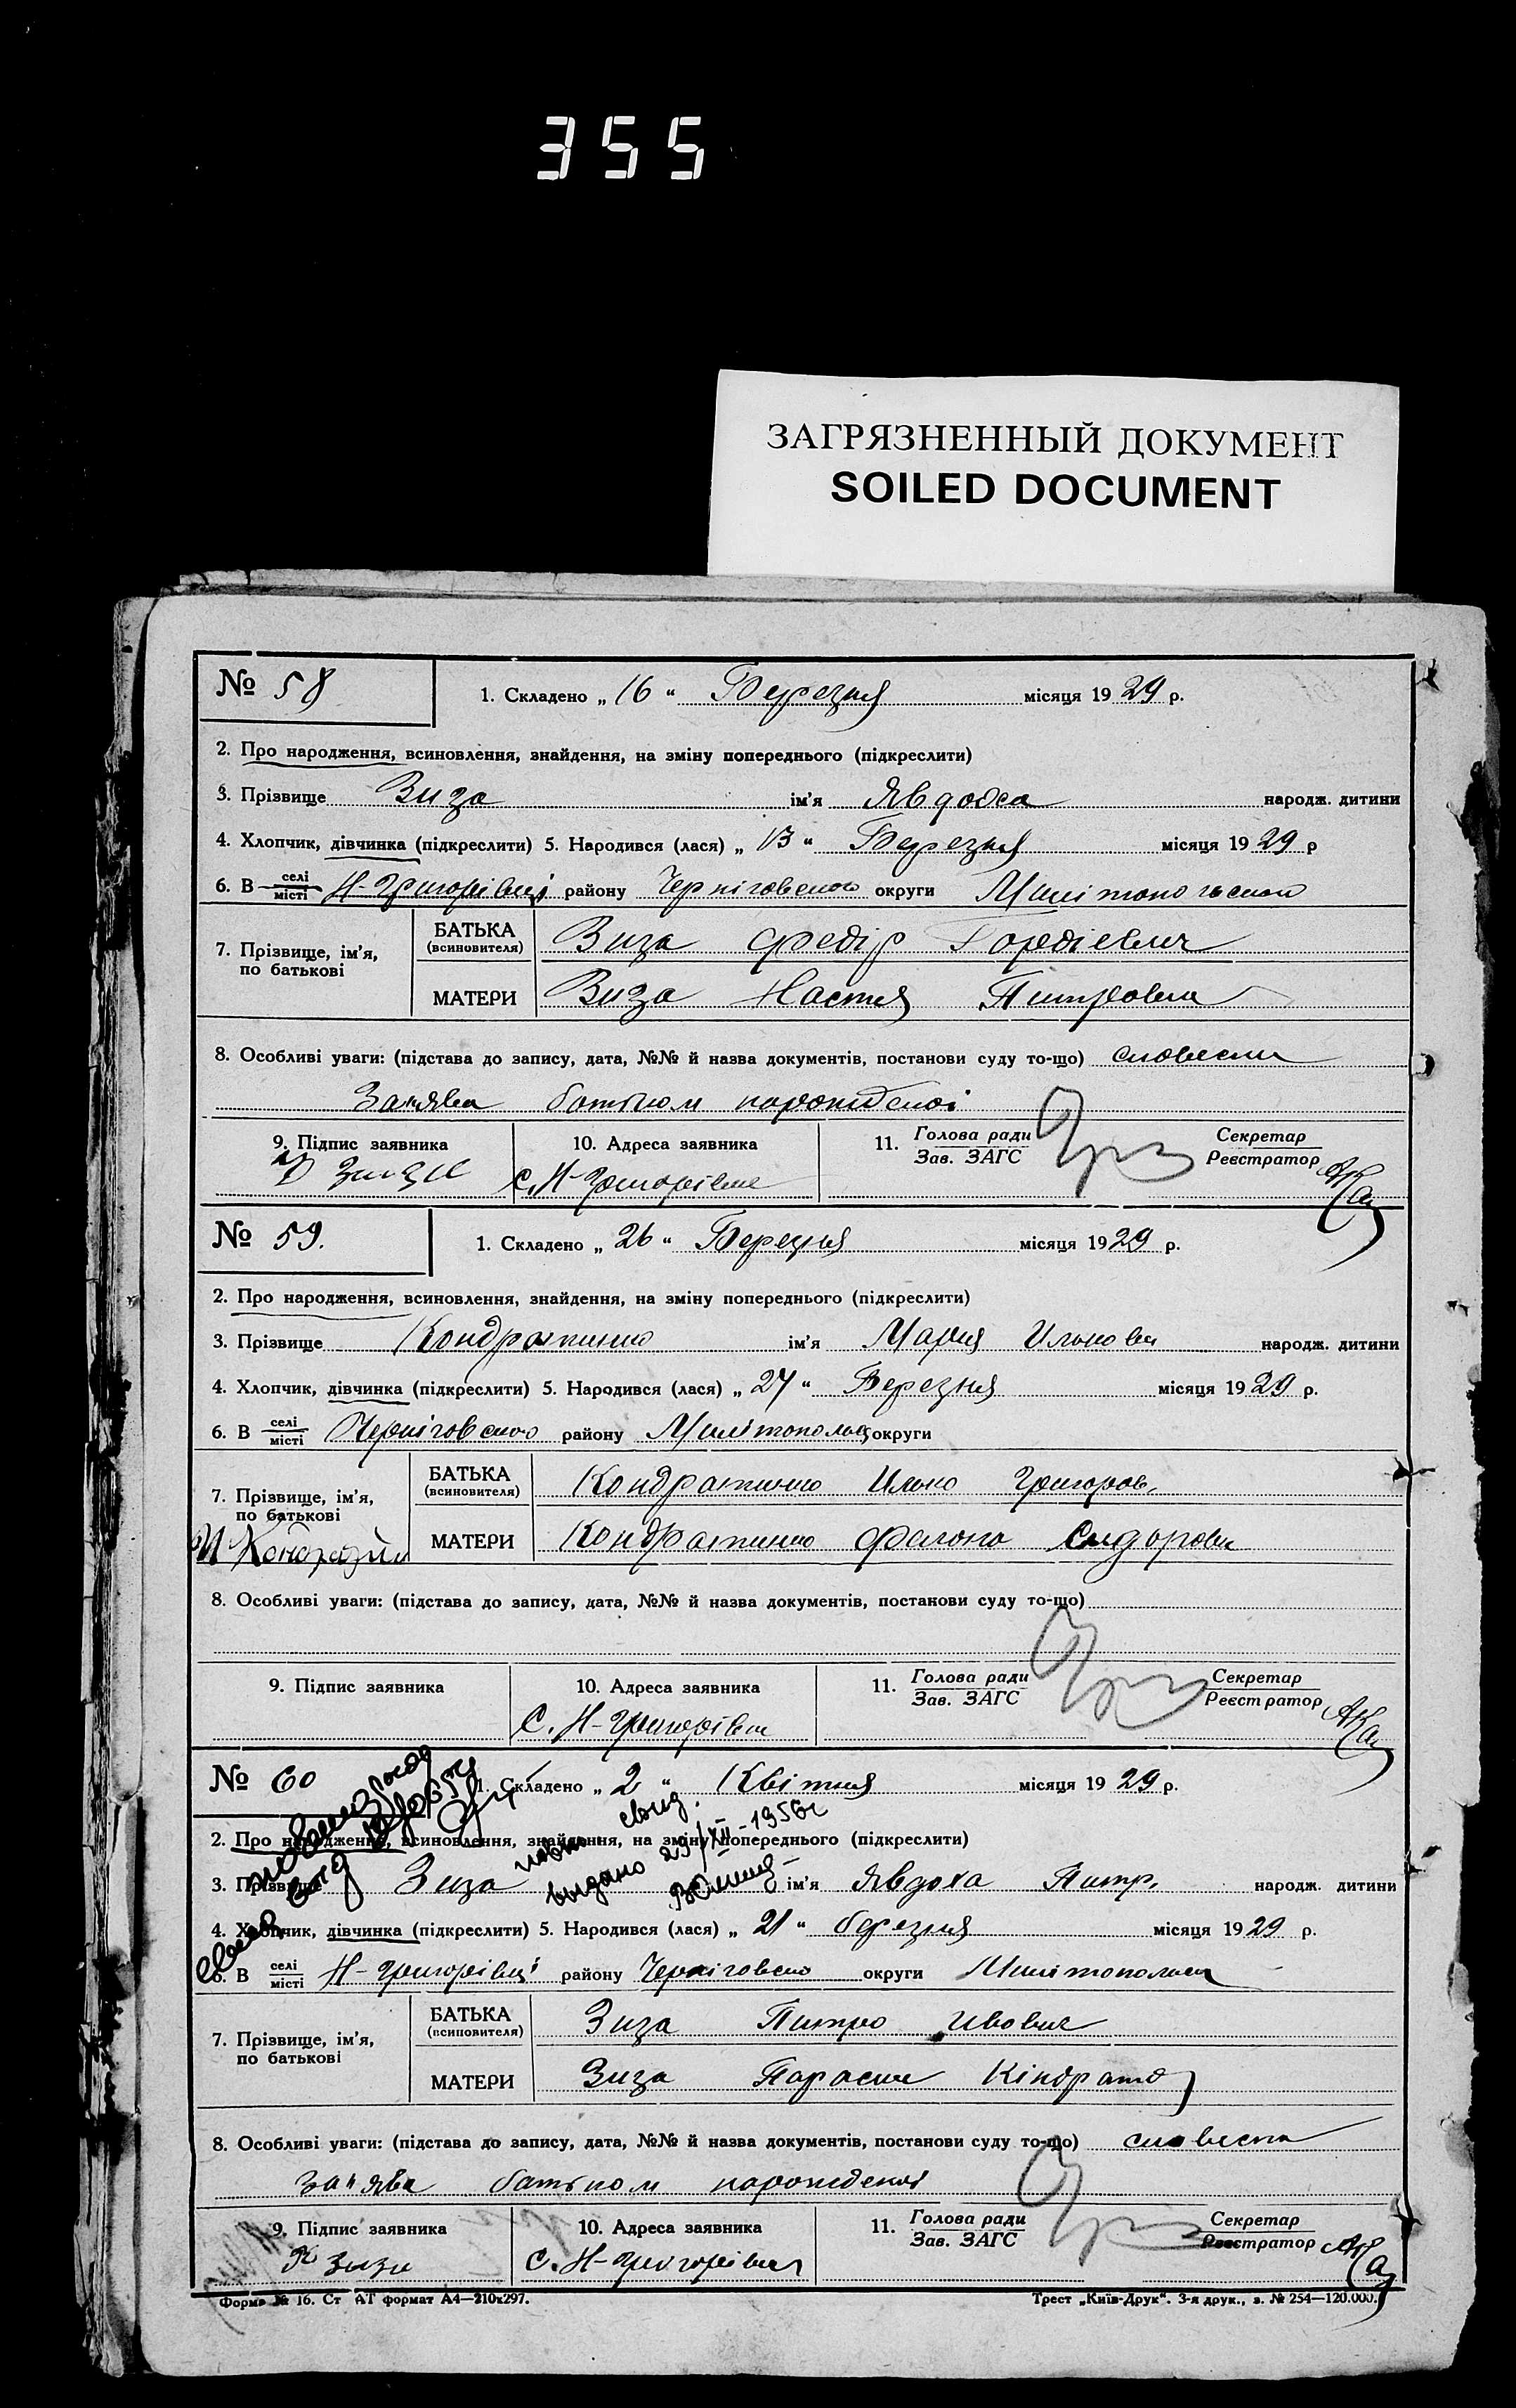 355
ЗАГРЯЗНЕННЫЙ ДОКУМЕНТ
SOILED DOCUMENT
№ 58 1. Складено „ 16 “ Березня місяця 1929 р.
2. Про народження, всиновлення, знайдення, на зміну попереднього (підкреслити)
3. Прізвище Зиза ім’я Явдоха народж. дитини
4. Хлопчик, дівчинка (підкреслити) 5. Народився (лася) „ 13 “ Березня місяця 1929 р
6. В селі місті Н-Григорівці району Черніговського округи
7. Прізвище, ім’я, по батькові
БАТЬКА (всиновителя) Зиза Федір Гордієвич
МАТЕРИ Зиза Настя Питровна
8. Особливі уваги: (підстава до запису, дата, №№ й назва документів, постанови суду то-що) словесна
заява батьком
9. Підпис заявника 10. Адреса заявника 11. Голова ради Зав. ЗАГС Секретар Реєстратор
с. Н-Григорівка
№ 59. 1. Складено „ 26 “ Березня місяця 1929 р.
2. Про народження, всиновлення, знайдення, на зміну попереднього (підкреслити)
3. Прізвище ім’я Мария народж. дитини
4. Хлопчик, дівчинка (підкреслити) 5. Народився (лася) „ 24 “ Березня місяця 1929 р.
6. В селі місті Черніговського району округи
7. Прізвище, ім’я, по батькові
БАТЬКА (всиновителя) Григоров.
МАТЕРИ Сидоровна
8. Особливі уваги: (підстава до запису, дата, №№ й назва документів, постанови суду то-що)
9. Підпис заявника 10. Адреса заявника 11. Голова ради Зав. ЗАГС Секретар Реєстратор
С. Н-Григорівка
№ 60 1. Складено „ 2 “ Квітня місяця 1929 р.
2. Про народження, всиновлення, знайдення, на зміну попереднього (підкреслити)
выдано 29/XII-1956г
3. Прізвище Зиза ім’я Явдоха Питр. народж. дитини
4. Хлопчик, дівчинка (підкреслити) 5. Народився (лася) „ 21 “ березня місяця 1929 р.
6. В селі місті Н-Григорівці району Черніговсько округи
7. Прізвище, ім’я, по батькові
БАТЬКА (всиновителя) Зиза Питро
МАТЕРИ Зиза Параска Кіндрато
8. Особливі уваги: (підстава до запису, дата, №№ й назва документів, постанови суду то-що) словесна
заява батьком
9. Підпис заявника 10. Адреса заявника 11. Голова ради Зав. ЗАГС Секретар Реєстратор
с. Н-Григорівка
Форма № 16. Ст АТ формат А4—210х297. Трест „Київ-Друк“. 3-я друк., з. № 254—120.000.